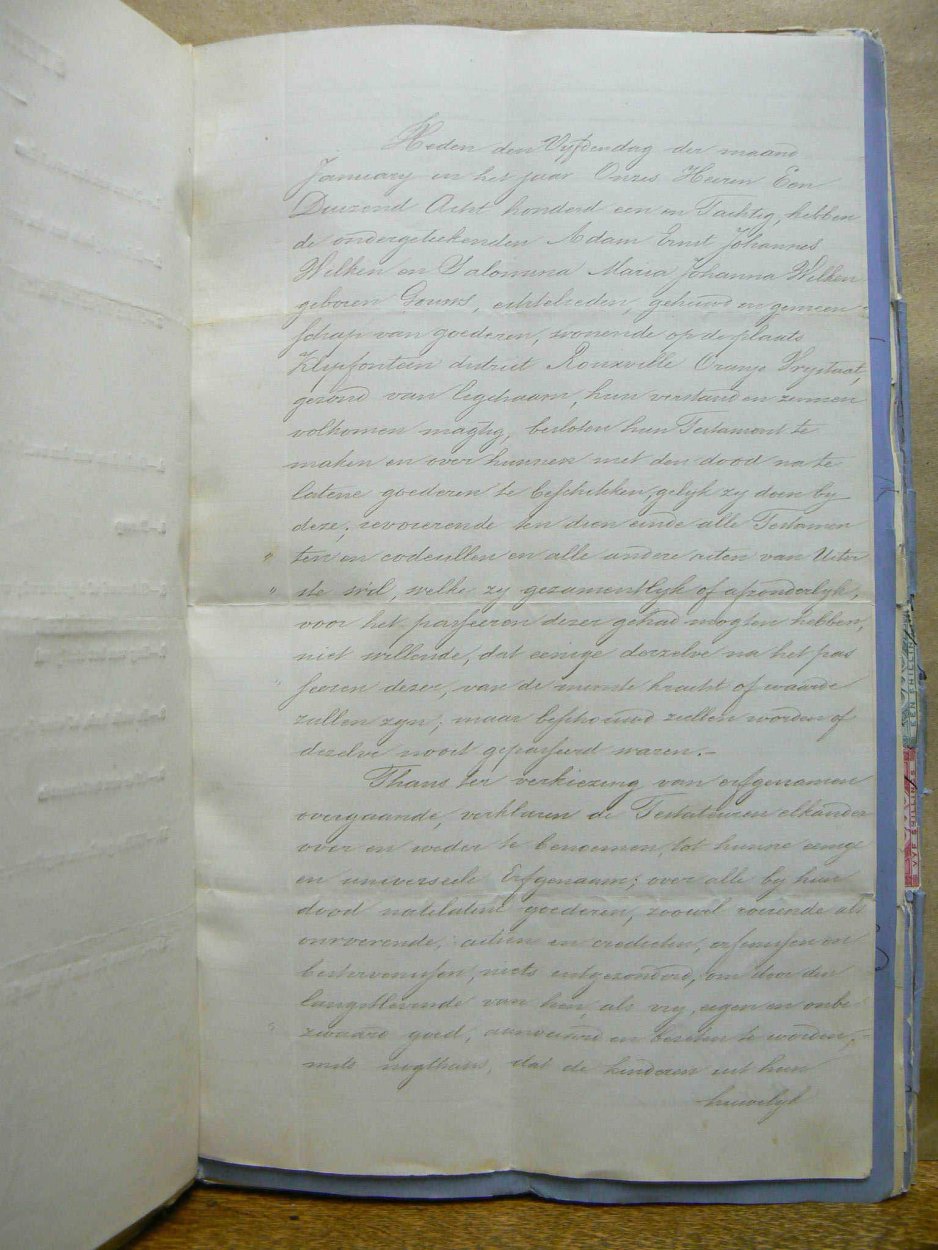 Heden den Vyfdendag der maand
January in het jaar Onzes Heeren Een
Duizend Acht honderd een en Tachtig, hebben
de ondergeteekenden Adam Ernst Johannes
Wilken en Salomina Maria Johanna Wilken
geboren Gouws, echtelieden, gehuwd in gemeen-
schap van goederen, wonende op de plaats
Klipfontein district Rouxville Oranje Vrystaat,
gezond van ligchaam, hun verstand en zinnen
volkomen magtig, besloten hun Testament te
maken en over hunnen met den dood na te
latene goederen te beschikken, gelyk zy doen by
deze, revoceerende ten dien einde alle Testamen
" ten en codecillen en alle andere acten van Uiter
" ste wil, welke zy gezamentlyk of afzonderlyk,
voor het passeeren dezer gehad mogten hebben,
niet willende, dat eenige derzelve na het pas
" seeren dezer, van de minste kracht of waarde
zullen zyn; maar beschouwd zullen worden of
dezelve nooit gepasseerd waren.-
Thans ter verkiezing van erfgenamen
overgaande, verklaren de Testateuren elkander
over en weder te benoemen, tot hunne eenige
en universeele Erfgenaam; over alle by hun
dood natelatene goederen, zoowel roerende als
onroerende, actien en credieten, erfenissen en
besterfenissen, niets uitgezonderd, om door den
langstlevende van hen als vry, eigen en onbe
" zwaard goed, aanvaard en bezeten te worden,
mits nogthans, dat de kinderen uit hun
huwelyk
EEN SHILLING
VYF SHILLINGS